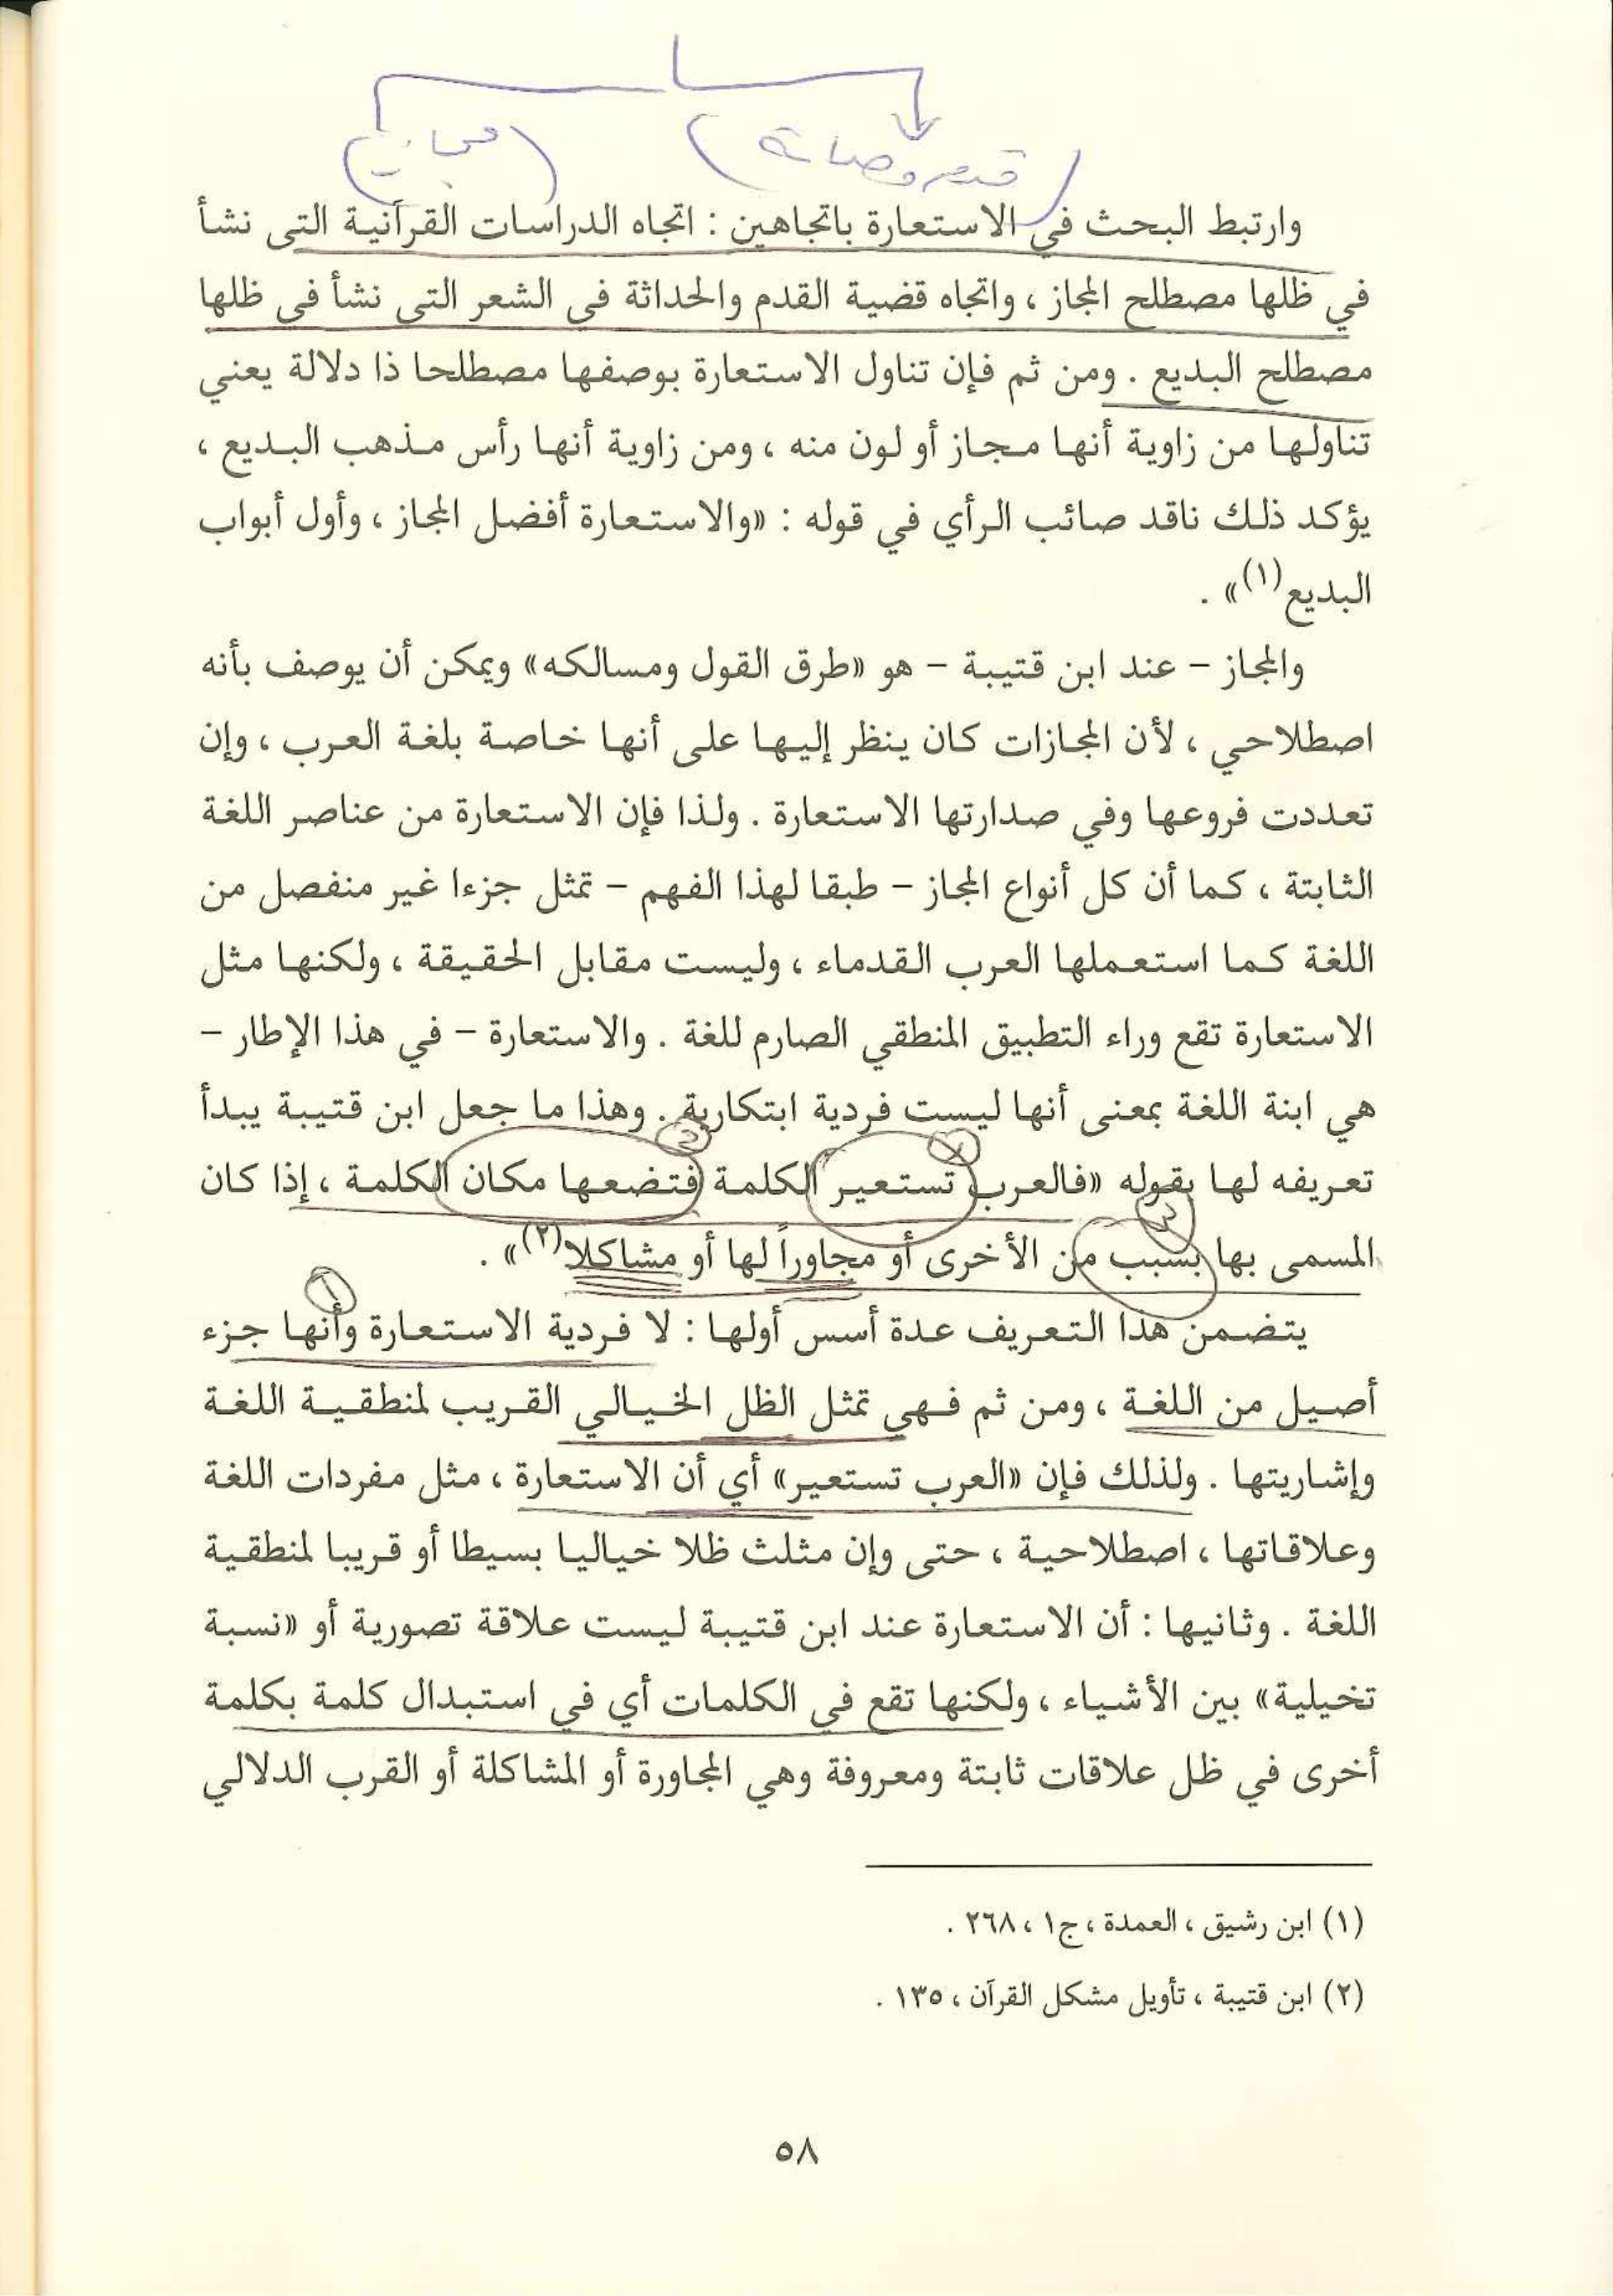 (قدم وحداثة) (مجاز)
وارتبط البحث في الاستعارة باتجاهين : اتجاه الدراسات القرآنية التى نشأ
في ظلها مصطلح المجاز ، واتجاه قضية القدم والحداثة فى الشعر التى نشأ فى ظلها
مصطلح البديع . ومن ثم فإن تناول الاستعارة بوصفها مصطلحا ذا دلالة يعني
تناولها من زاوية أنها مجاز أو لون منه ، ومن زاوية أنها رأس مذهب البديع ،
يؤكد ذلك ناقد صائب الرأي في قوله : «والاستعارة أفضل المجاز ، وأول أبواب
البديع(١)» .
والمجاز – عند ابن قتيبة – هو «طرق القول ومسالكه» ويمكن أن يوصف بأنه
اصطلاحي ، لأن المجازات كان ينظر إليها على أنها خاصة بلغة العرب ، وإن
تعددت فروعها وفي صدارتها الاستعارة . ولذا فإن الاستعارة من عناصر اللغة
الثابتة ، كما أن كل أنواع المجاز – طبقا لهذا الفهم – تمثل جزءا غير منفصل من
اللغة كما استعملها العرب القدماء ، وليست مقابل الحقيقة ، ولكنها مثل
الاستعارة تقع وراء التطبيق المنطقي الصارم للغة . والاستعارة – في هذا الإطار –
هي ابنة اللغة بمعنى أنها ليست فردية ابتكارية . وهذا ما جعل ابن قتيبة يبدأ
تعريفه لها بقوله «فالعرب تستعير الكلمة فتضعها مكان الكلمة ، إذا كان
المسمى بها بسبب من الأخرى أو مجاوراً لها أو مشاكلا(٢)» .
يتضمن هذا التعريف عدة أسس أولها : لا فردية الاستعارة وأنها جزء
أصيل من اللغة ، ومن ثم فهي تمثل الظل الخيالي القريب لمنطقية اللغة
وإشاريتها . ولذلك فإن «العرب تستعير» أي أن الاستعارة ، مثل مفردات اللغة
وعلاقاتها ، اصطلاحية ، حتى وإن مثلث ظلا خياليا بسيطا أو قريبا لمنطقية
اللغة . وثانيها : أن الاستعارة عند ابن قتيبة ليست علاقة تصورية أو «نسبة
تخيلية» بين الأشياء ، ولكنها تقع في الكلمات أي في استبدال كلمة بكلمة
أخرى في ظل علاقات ثابتة ومعروفة وهي المجاورة أو المشاكلة أو القرب الدلالي
(١) ابن رشيق ، العمدة ، ج١ ، ٢٦٨ .
(٢) ابن قتيبة ، تأويل مشكل القرآن ، ١٣٥ .
٥٨